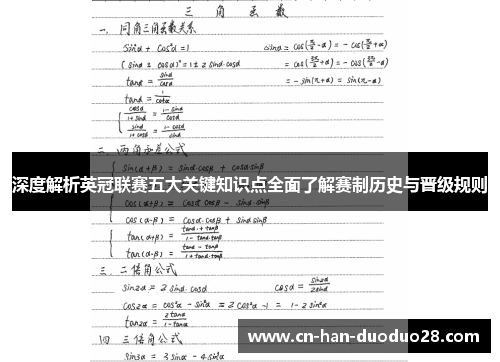 三 角 函 数
一、同角三角函数关系
sin²α + cos²α = 1
sinα = cos(π/2-α) = -cos(π/2+α)
(sinα ± cosα)² = 1 ± 2 sinα·cosα
= cos(3π/2+α) = -cos(3π/2-α)
tanα = sinα/cosα
= -sin(π+α) = sin(π-α)
tanα = 1/cotα
cosα/1+sinα = 1-sinα/cosα
sinα/1+cosα = 1-cosα/sinα
二、两角和差公式
sin(α+β) = sinα·cosβ + cosα·sinβ
深度解析英冠联赛五大关键知识点全面了解赛制历史与晋级规则
cos(α+β) = cosα·cosβ - sinα·sinβ
cos(α-β) = cosα·cosβ + sinα·sinβ
tan(α+β) = tanα+tanβ/1-tanα·tanβ
tan(α-β) = tanα-tanβ/1+tanα·tanβ
三、二倍角公式
sin2α = 2 sinα·cosα
cosα = sin2α/2sinα
cos2α = cos²α - sin²α = 2cos²α - 1 = 1 - 2sin²α
tan2α = 2tanα/1-tan²α
四 三倍角公式
sin3α = 3sinα - 4sin³α
www.cn-han-duoduo28.com